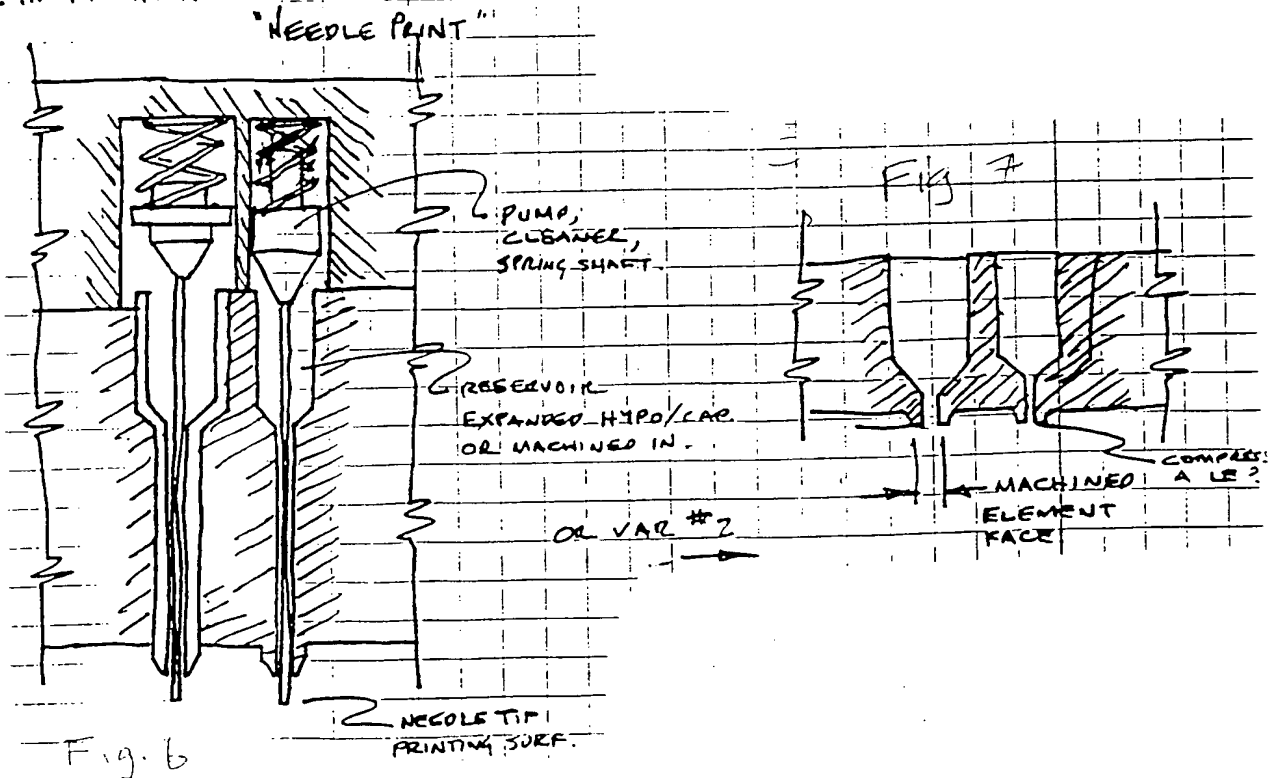 "NEEDLE PRINT"
PUMP,
CLEANER,
SPRING SHAFT
RESERVOIR
EXPANDED HYPO/CAP.
OR MACHINED IN.
NEEDLE TIP
PRINTING SURF.
Fig. 6
OR VAR #2
Fig 7
COMPRESS
A LE?
MACHINED
ELEMENT
FACE